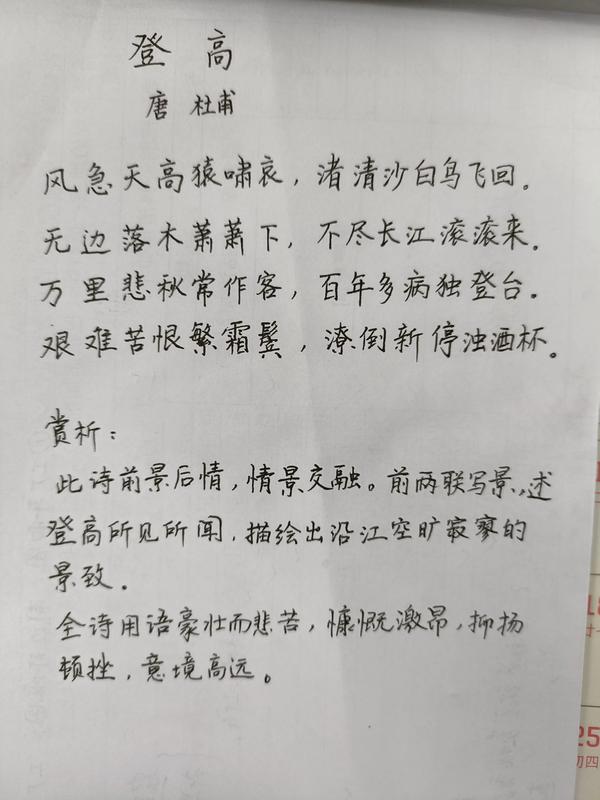 登 高
唐 杜甫
风急天高猿啸哀，渚清沙白鸟飞回。
无边落木萧萧下，不尽长江滚滚来。
万里悲秋常作客，百年多病独登台。
艰难苦恨繁霜鬓，潦倒新停浊酒杯。
赏析：
此诗前景后情，情景交融。前两联写景，述
登高所见所闻，描绘出沿江空旷寂寥的
景致。
全诗用语豪壮而悲苦，慷慨激昂，抑扬
顿挫，意境高远。
18
25
初四